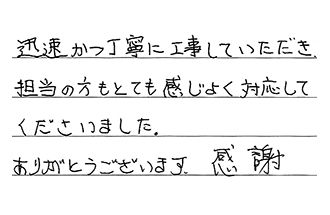 迅速かつ丁寧に工事していただき、
担当の方もとても感じよく対応して
くださいました。
ありがとうございます。感謝